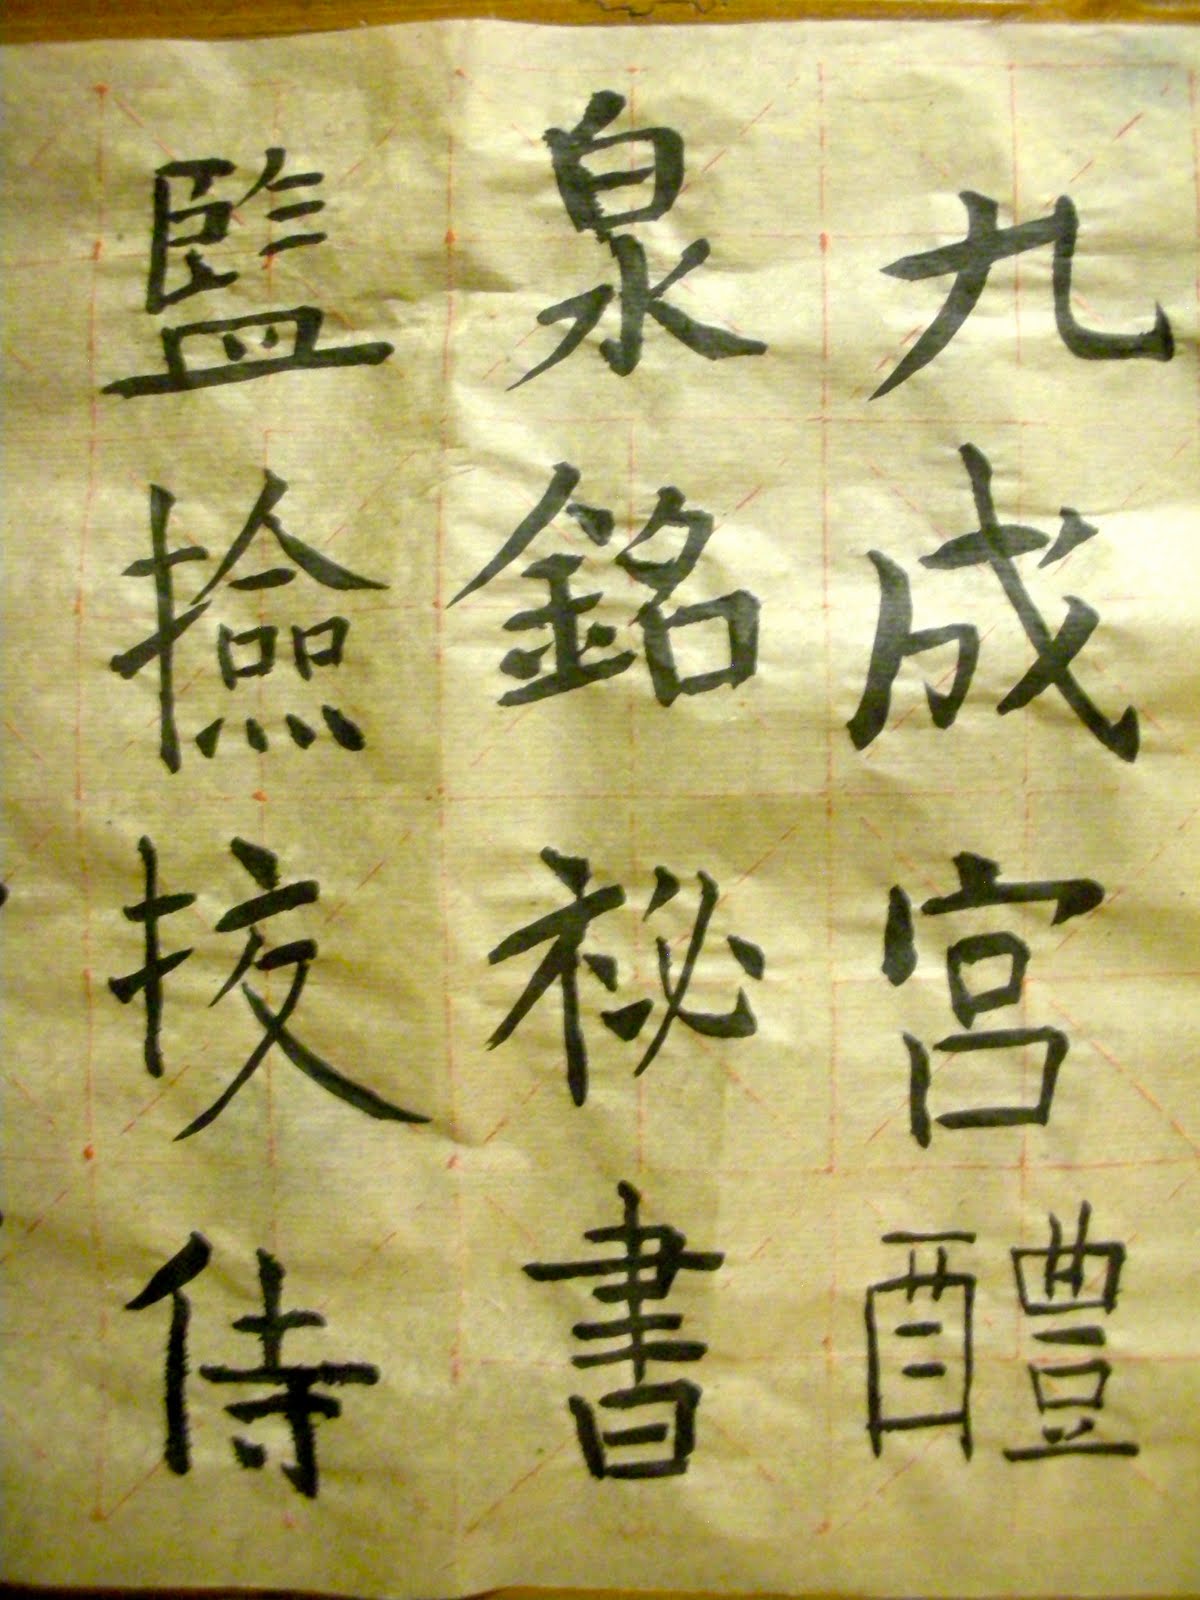 九成宮醴
泉銘秘書
監撿挍侍